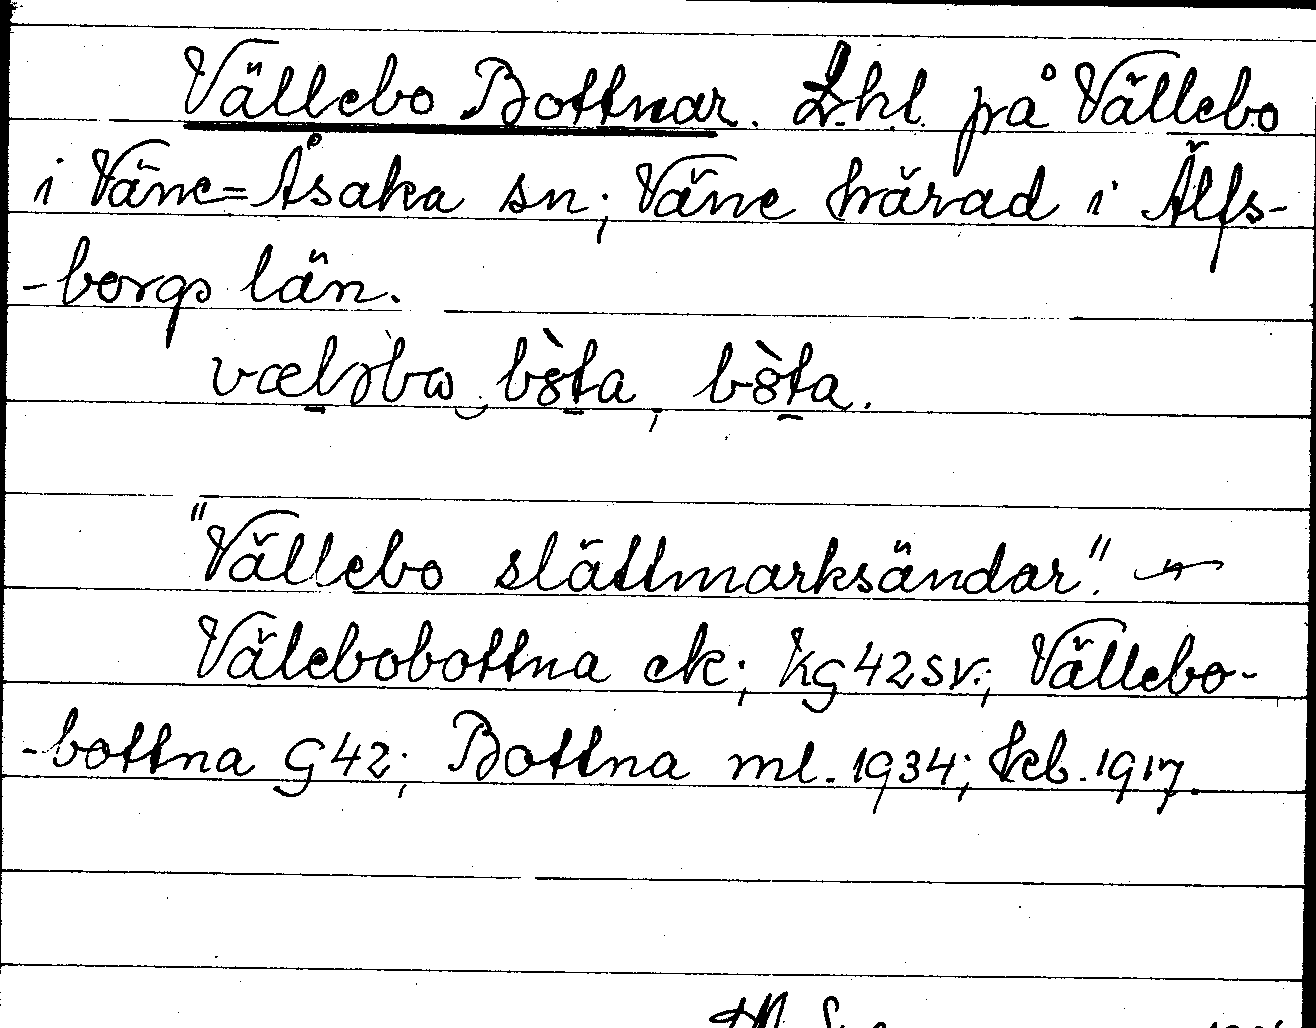 Vällebo Bottnar. L.hl. på Vällebo
i Väne=Åsaka sn; Väne härad i Älfs-
-borgs län.
"Vällebo slättmarksändar".
Välebobottna ek; KG42SV.; Vällebo-
-bottna G42; Bottna ml. 1934; kb. 1917.